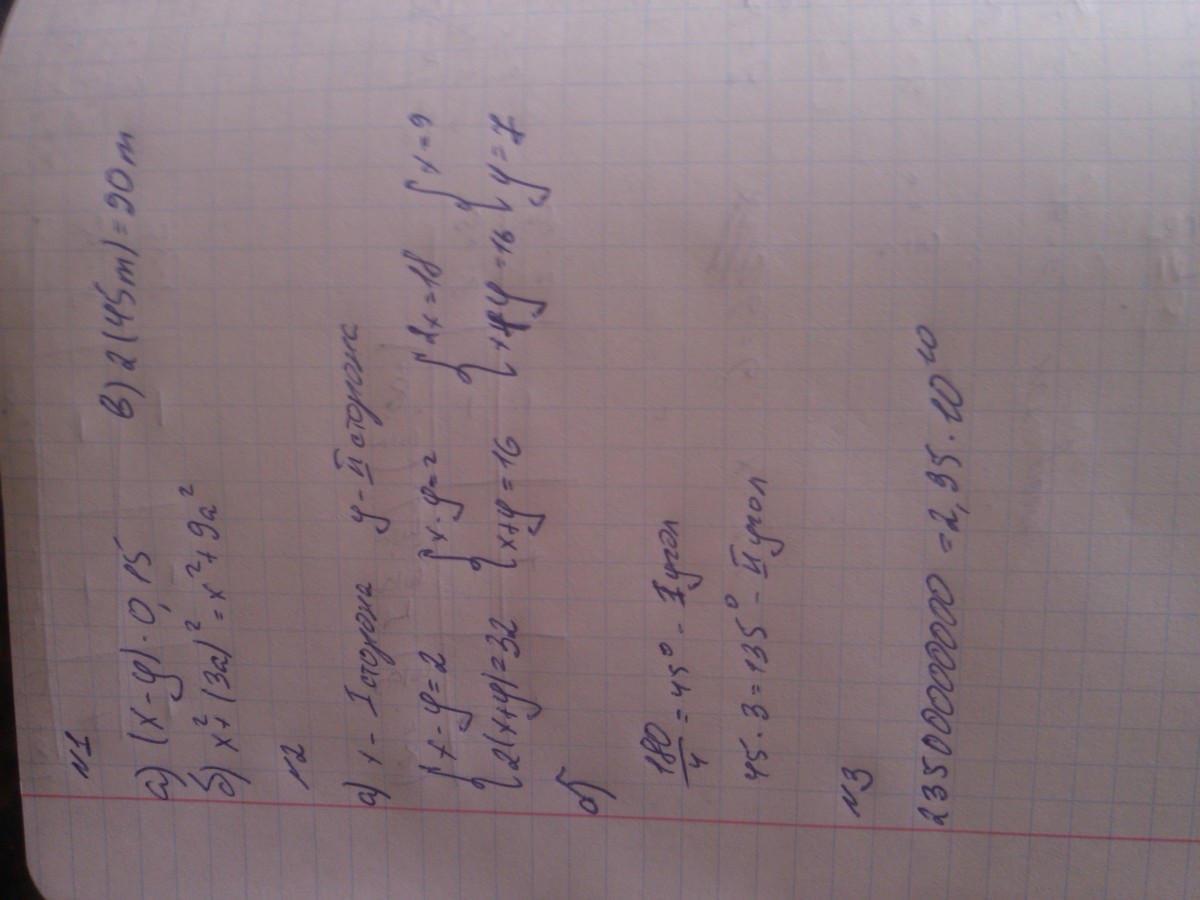 №1
а) (x-y)·0,15 в) 2(45m)=90m
б) x²+(3a)²=x²+9a²
№2
а) x - I сторона y - II сторона
{x-y=2 {x-y=2 {2x=18 {x=9
{2(x+y)=32 {x+y=16 {x+y=16 {y=7
б)
180/4=45° - I угол
45·3=135° - II угол
№3
=2,95·10¹⁰